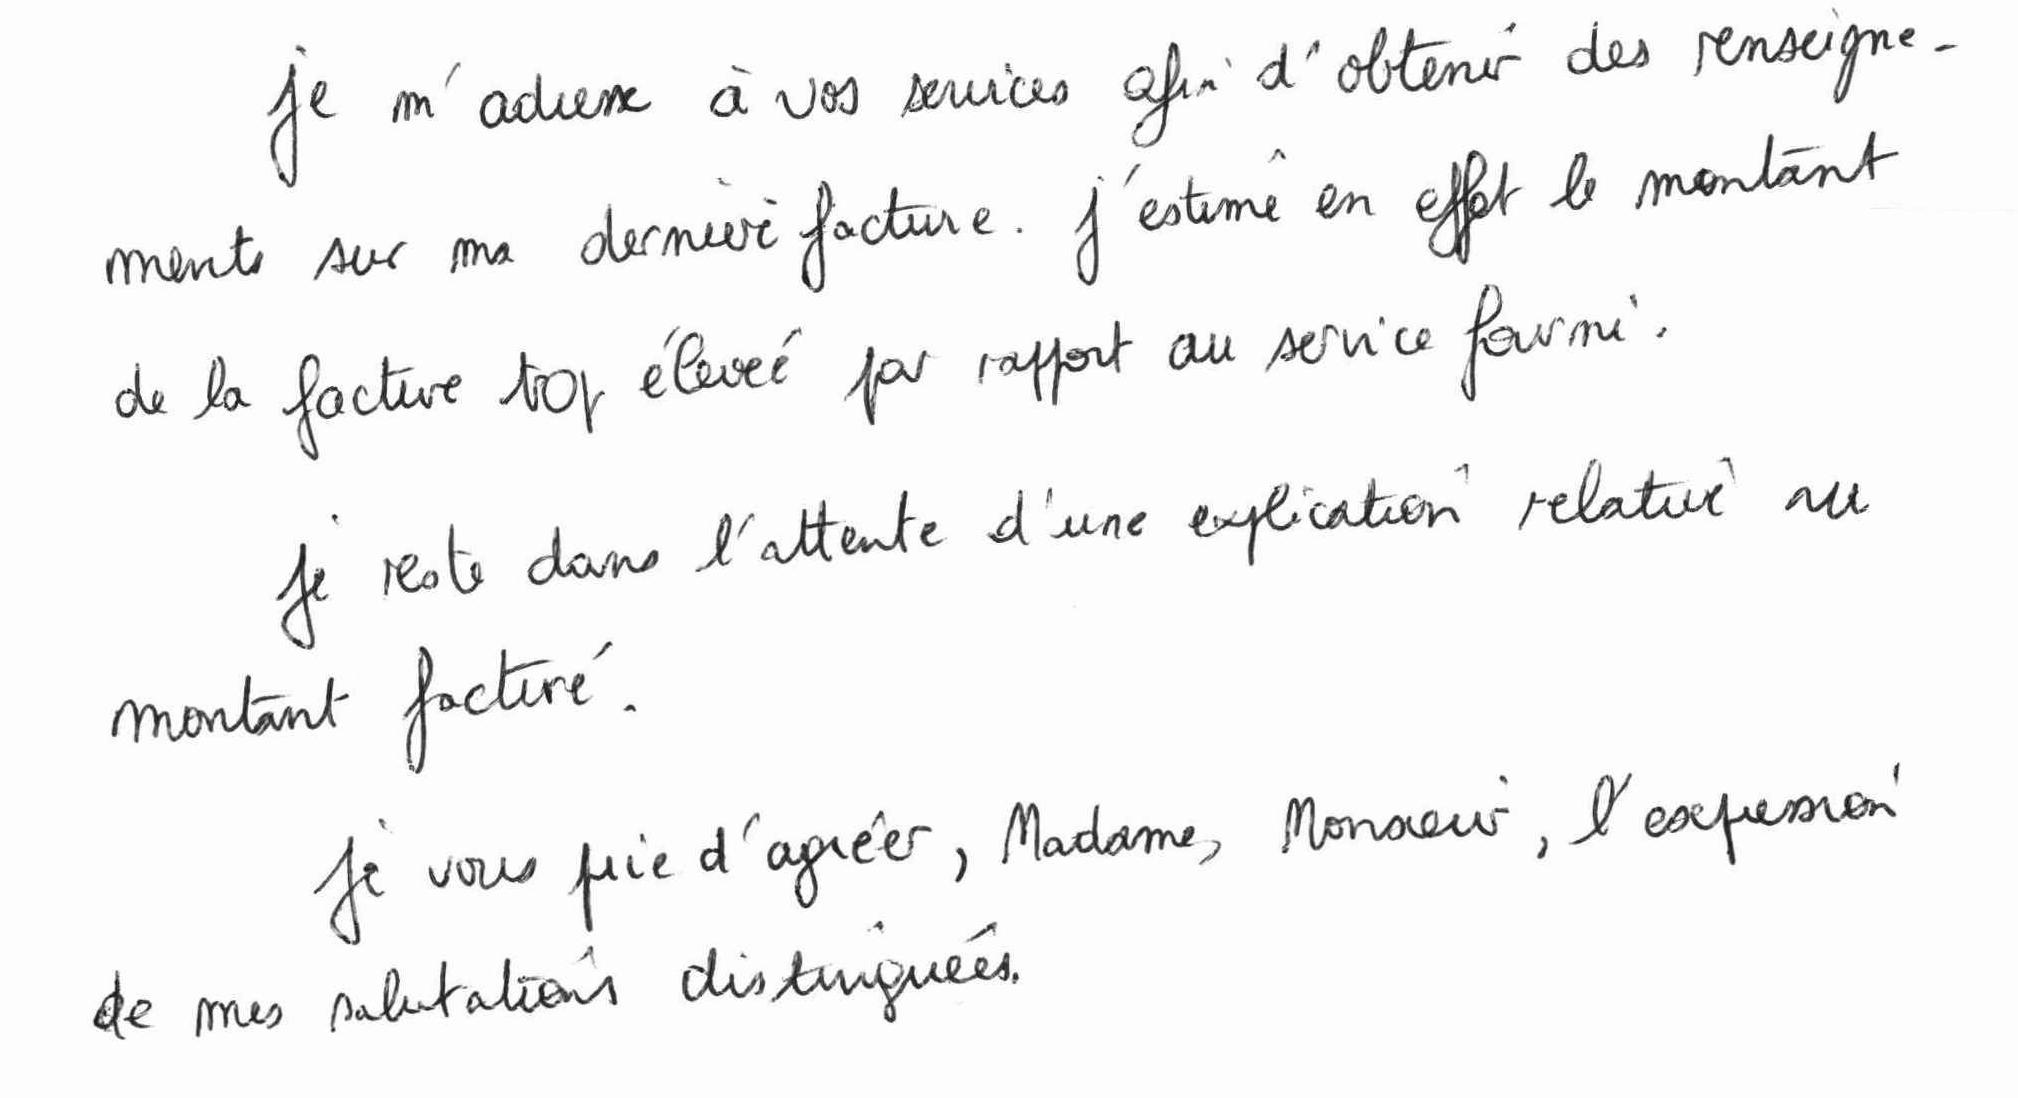 je m'adresse à vos services afin d'obtenir des renseigne-
ments sur ma dernière facture. j'estime en effet le montant
de la facture trop élevée par rapport au service fourni.
je reste dans l'attente d'une explication relative au
montant facturé.
je vous prie d'agréer, Madame, Monsieur, l'expression
de mes salutations distinguées.